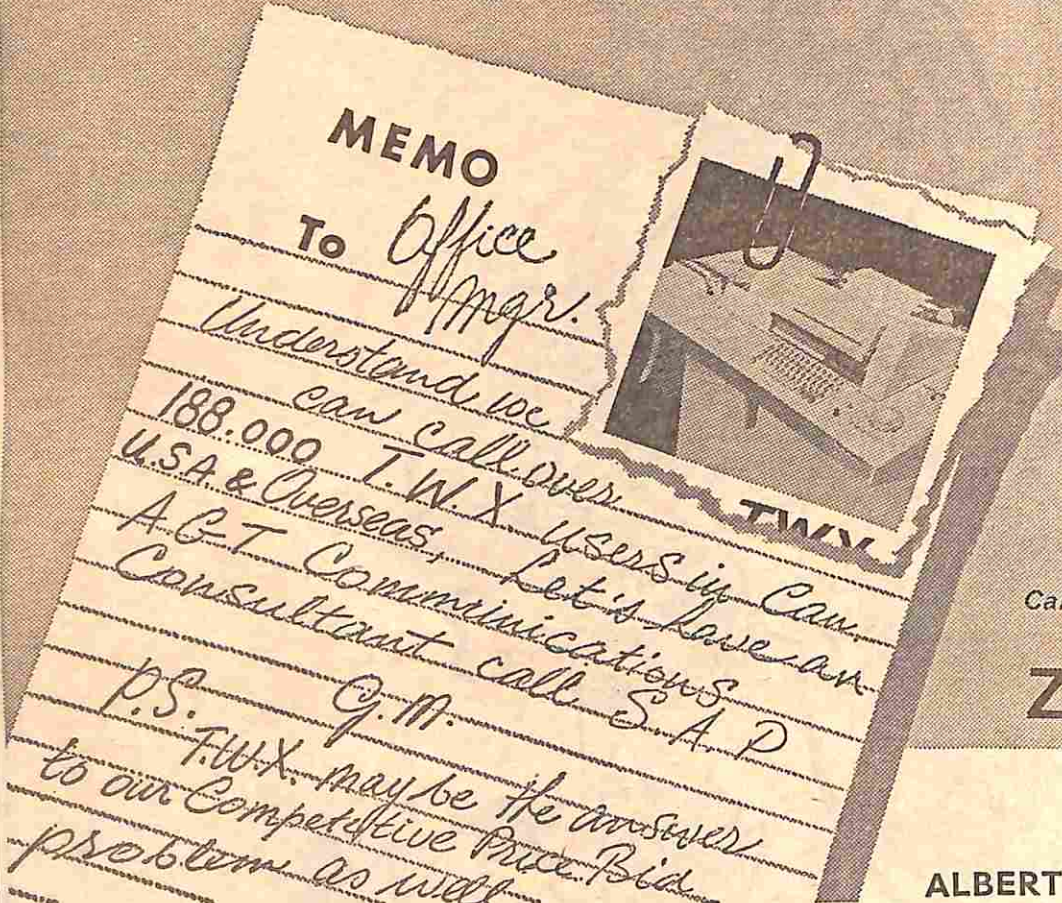 MEMO
To Office
Mgr.
Understand we
can call over
188.000 T.W.X users in Can.
U.S.A. & Overseas, Let's have an
A-G-T Communications
Consultant call S A P
G.M.
P.S.
T.W.X. may be the answer
to our Competitive Price Bid
problem as well
TWX
Ca
Z
ALBERT